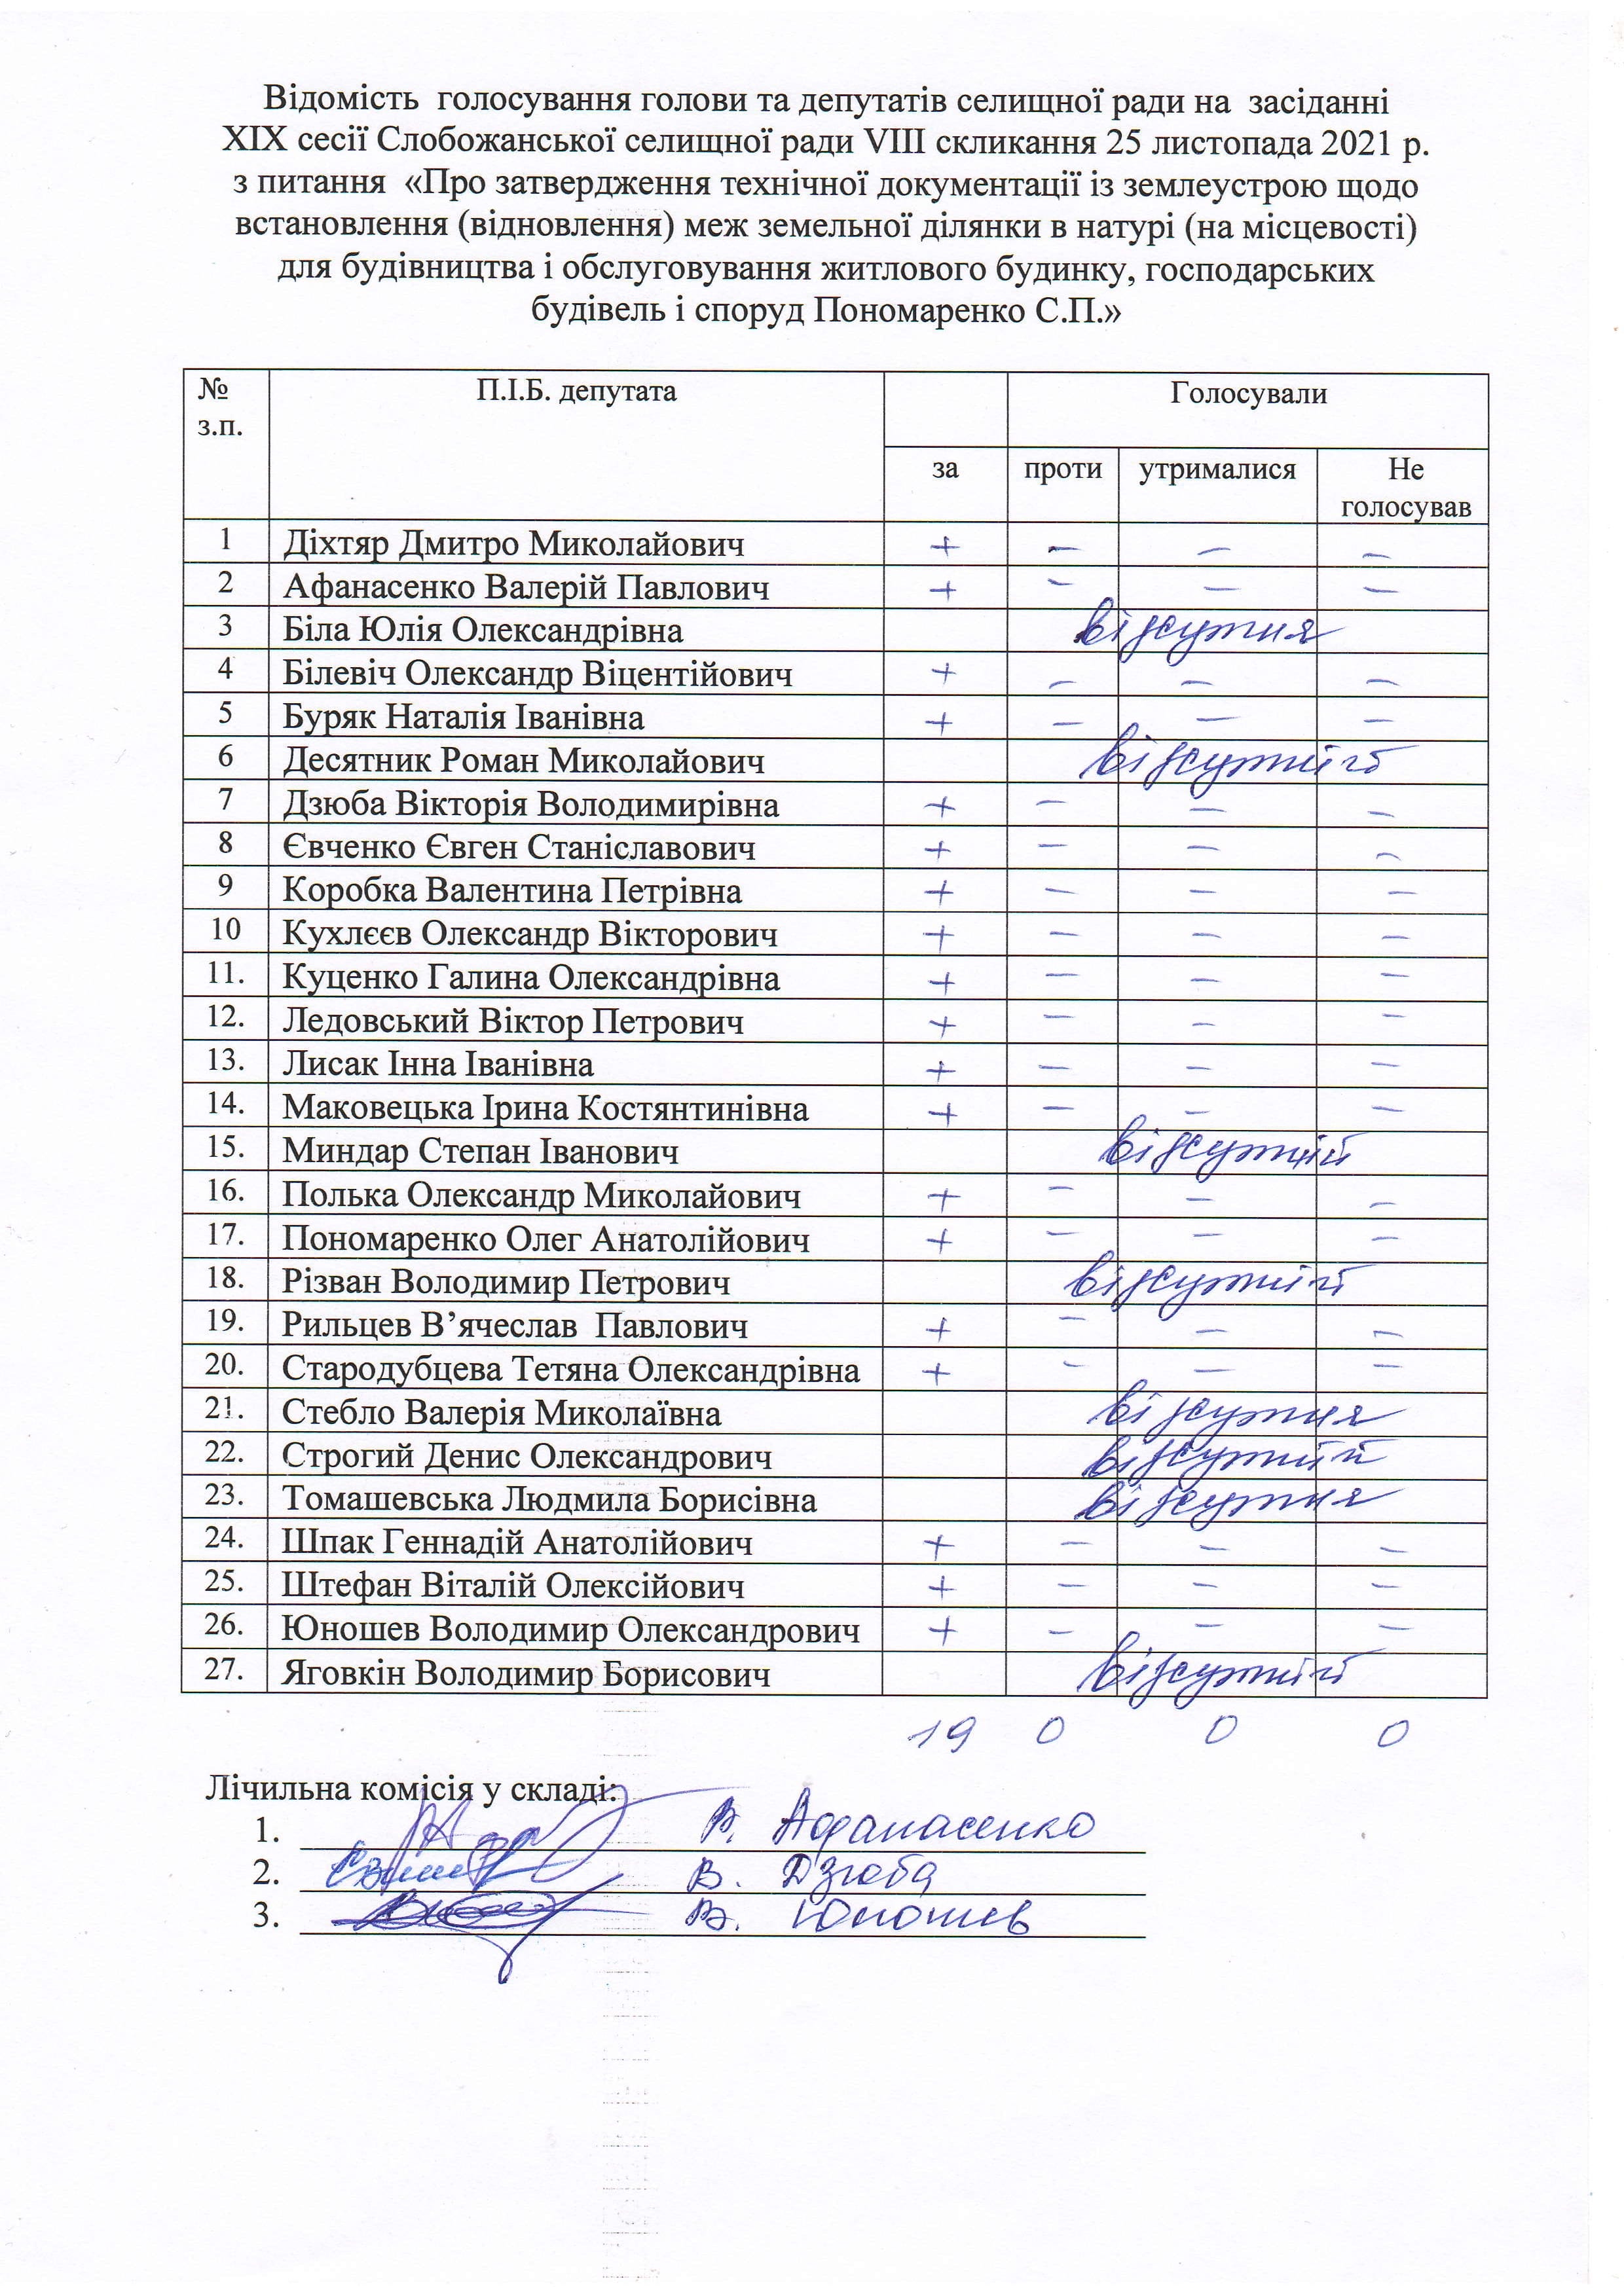 Відомість голосування голови та депутатів селищної ради на засіданні
XIX сесії Слобожанської селищної ради VIII скликання 25 листопада 2021 р.
з питання «Про затвердження технічної документації із землеустрою щодо
встановлення (відновлення) меж земельної ділянки в натурі (на місцевості)
для будівництва і обслуговування житлового будинку, господарських
будівель і споруд Пономаренко С.П.»
№ з.п. П.І.Б. депутата Голосували
за проти утрималися Не голосував
1 Діхтяр Дмитро Миколайович + – – –
2 Афанасенко Валерій Павлович + – – –
3 Біла Юлія Олександрівна відсутня
4 Білевіч Олександр Віцентійович + – – –
5 Буряк Наталія Іванівна + – – –
6 Десятник Роман Миколайович відсутній
7 Дзюба Вікторія Володимирівна + – – –
8 Євченко Євген Станіславович + – – –
9 Коробка Валентина Петрівна + – – –
10 Кухлєєв Олександр Вікторович + – – –
11. Куценко Галина Олександрівна + – – –
12. Ледовський Віктор Петрович + – – –
13. Лисак Інна Іванівна + – – –
14. Маковецька Ірина Костянтинівна + – – –
15. Миндар Степан Іванович відсутній
16. Полька Олександр Миколайович + – – –
17. Пономаренко Олег Анатолійович + – – –
18. Різван Володимир Петрович відсутній
19. Рильцев В’ячеслав Павлович + – – –
20. Стародубцева Тетяна Олександрівна + – – –
21. Стебло Валерія Миколаївна відсутня
22. Строгий Денис Олександрович відсутній
23. Томашевська Людмила Борисівна відсутня
24. Шпак Геннадій Анатолійович + – – –
25. Штефан Віталій Олексійович + – – –
26. Юношев Володимир Олександрович + – – –
27. Яговкін Володимир Борисович відсутній
19 0 0 0
Лічильна комісія у складі:
1. В. Афанасенко
2. В. Дзюба
3. В. Юношев